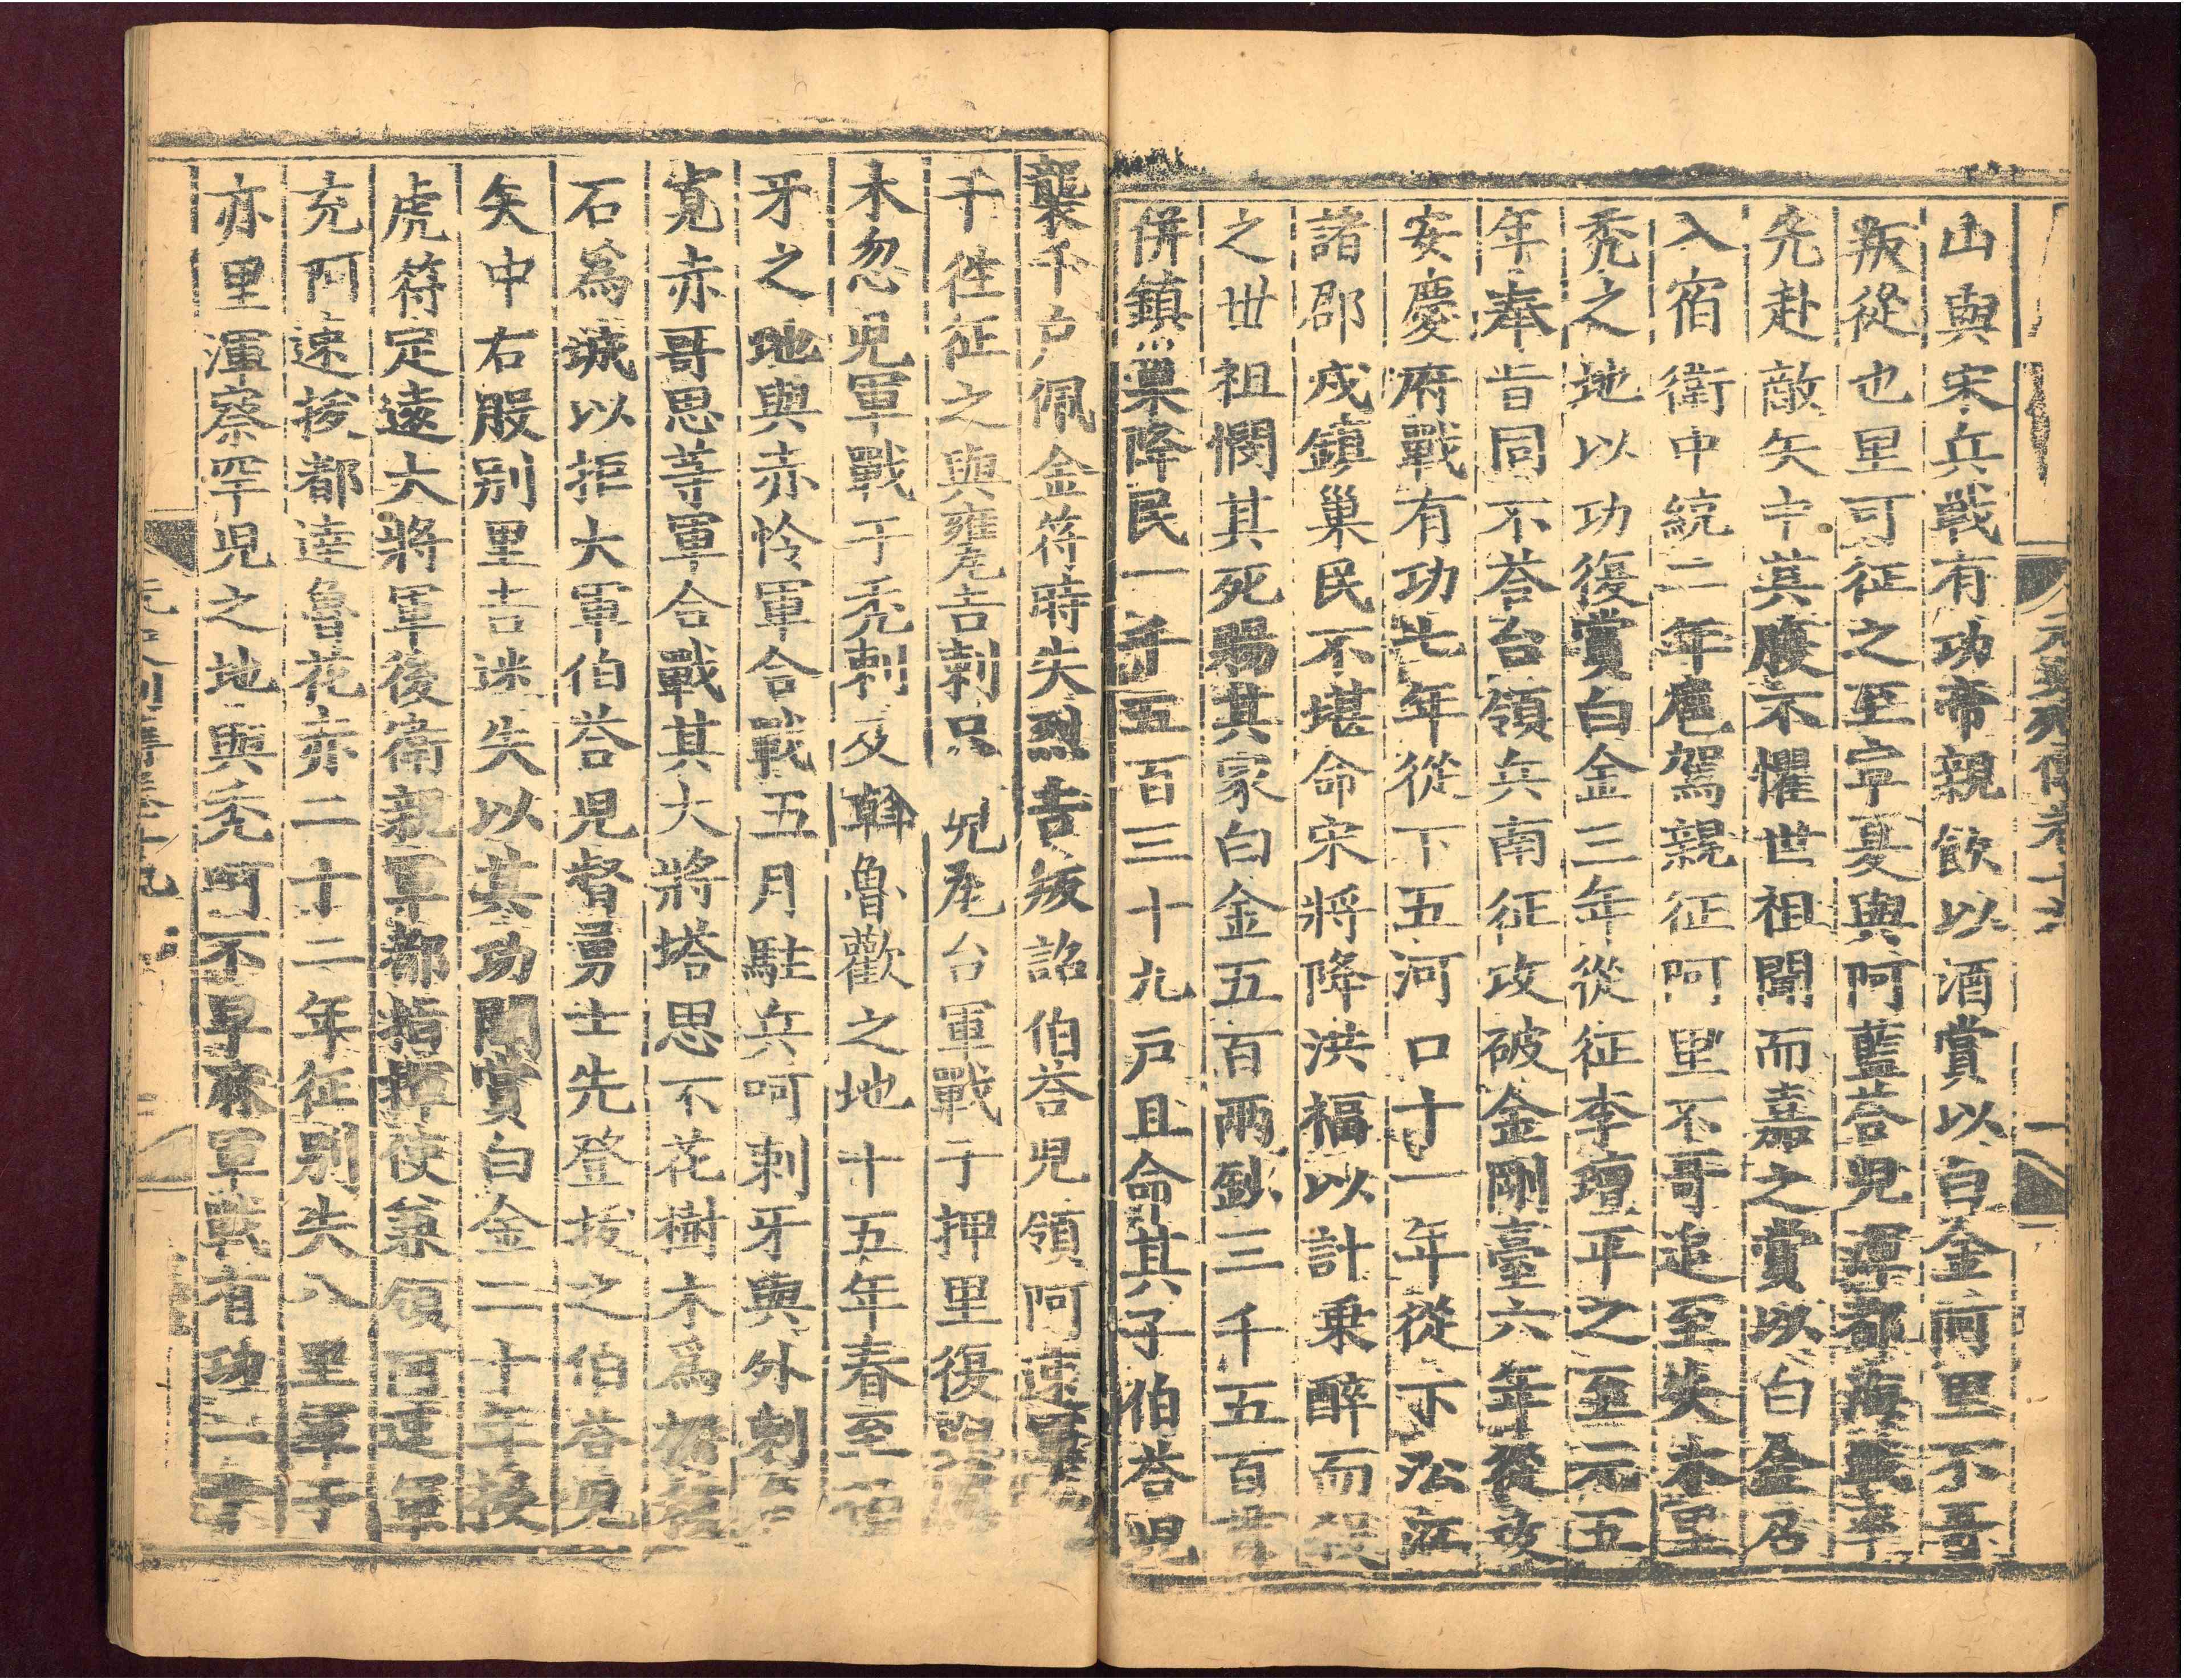 山與宋兵戰有功帝親飲以酒賞以白金阿里不哥
叛從也里可征之至寧夏與阿藍荅兒渾都海戰率
先赴敵矢中其腹不懼世祖聞而嘉之賞以白金召
入宿衛中統二年扈駕親征阿里不哥追至失木里
禿之地以功復賞白金三年從征李璮平之至元五
年奉旨同不荅台領兵南征攻破金剛臺六年從攻
安慶府戰有功七年從下五河口十一年從下沿江
諸郡戍鎮巢民不堪命宋將降洪福以計乗醉而殺
之世祖憫其死賜其家白金五百兩鈔三千五百貫
併鎮巢降民一千五百三十九戶且命其子伯荅兒
襲千戶佩金符時失烈吉叛詔伯荅兒領阿速軍一
千徃征之與甕吉剌只兒瓦台軍戰于押里復與藥
木忽兒軍戰于禿剌及斡魯歡之地十五年春至伯
牙之地與赤怜軍合戰五月駐兵呵剌牙與外剌台
寛赤哥思等軍合戰其大將塔思不花樹木為柵積
石為城以拒大軍伯荅兒督勇士先登拔之伯荅兒
矢中右股别里吉迷失以其功聞賞白金二十年授
虎符定遠大將軍後衛親軍都指揮使兼領阿速軍
充阿速拔都達魯花赤二十二年征别失八里軍于
亦里渾察罕兒之地與禿呵不早麻軍戰有功二十